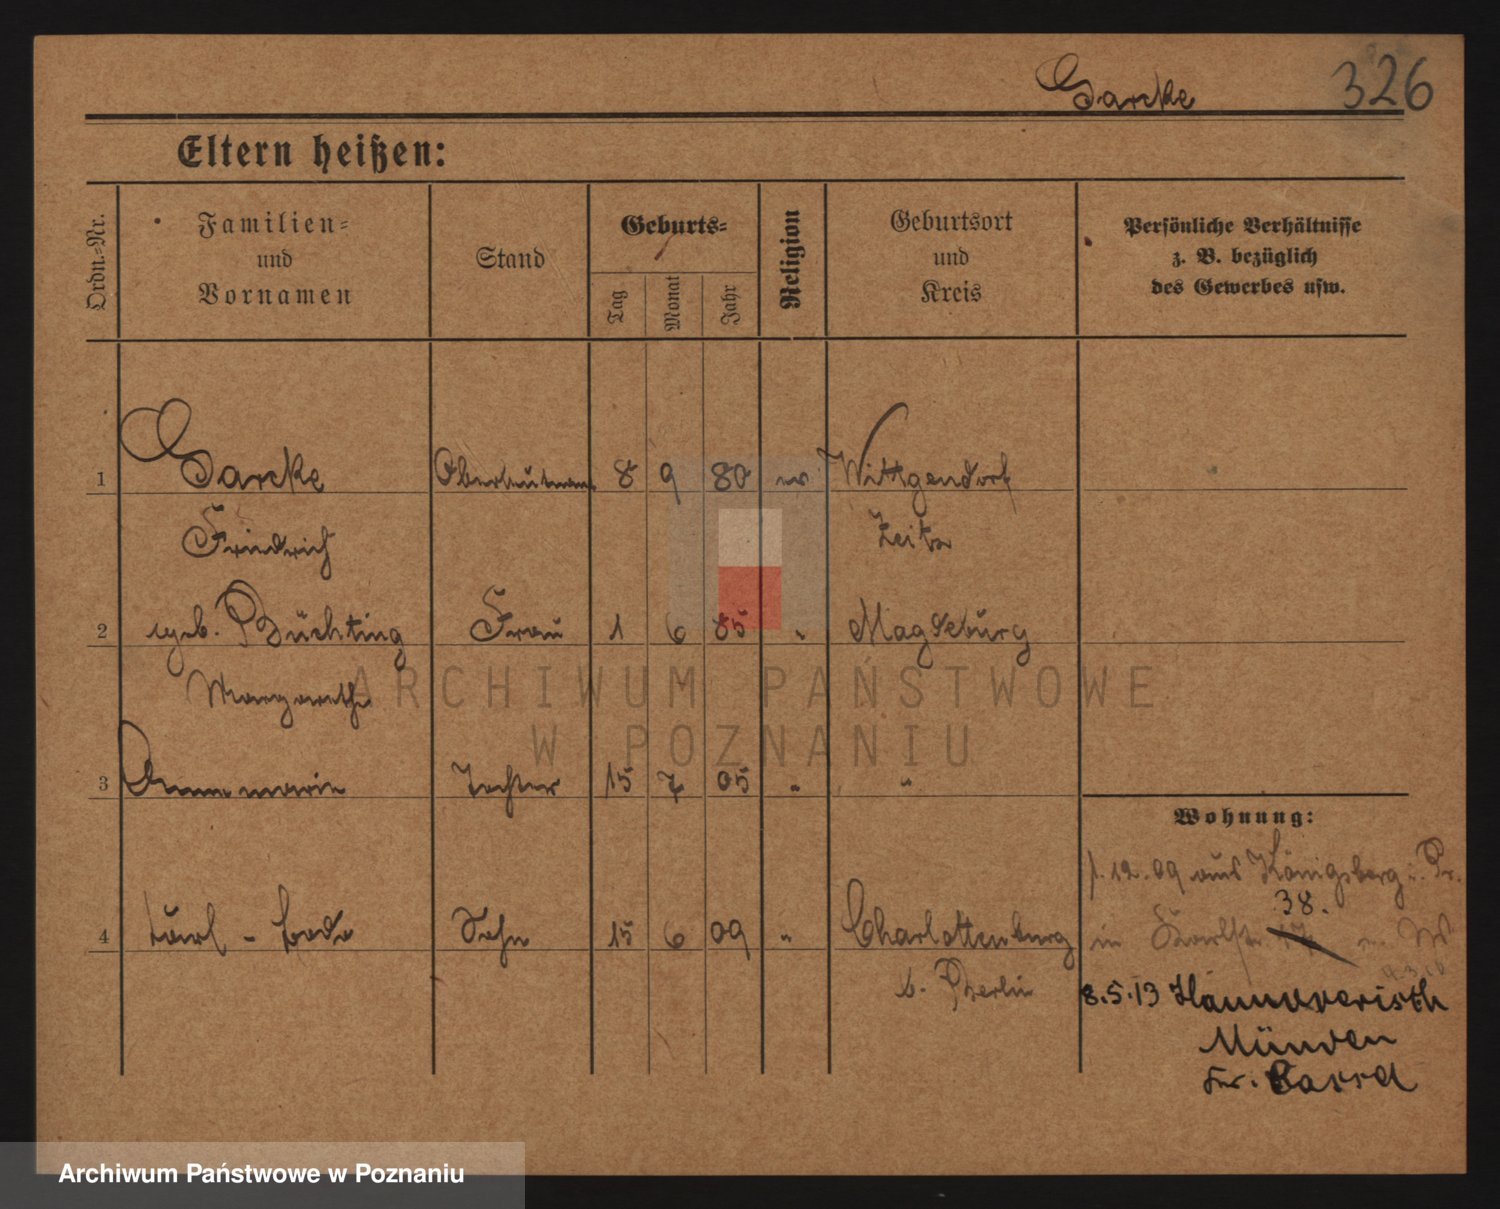 Garcke 326
Eltern heißen:
Ordn.-Nr.
Familien-
und
Vornamen
Stand
Geburts-
Tag
Monat
Jahr
Religion
Geburtsort
und
Kreis
Persönliche Verhältnisse
z. B. bezüglich
des Gewerbes usw.
1 Garcke Oberleutnant 8 9 80 ev Wittgendorf
Friedrich Zeitz
2 geb. Büchting Frau 1 6 85 " Magdeburg
Margarethe
3 Annemarie Tochter 15 7 05 " "
Wohnung:
1.12.09 aus Königsberg i. Pr.
38.
4 Karl - Bodo Sohn 15 6 09 " Charlottenburg in Karlstr. 17
b. Berlin 8.5.13 Hannoverisch
Münden
Kr.
ARCHIWUM PAŃSTWOWE
W POZNANIU
Archiwum Państwowe w Poznaniu